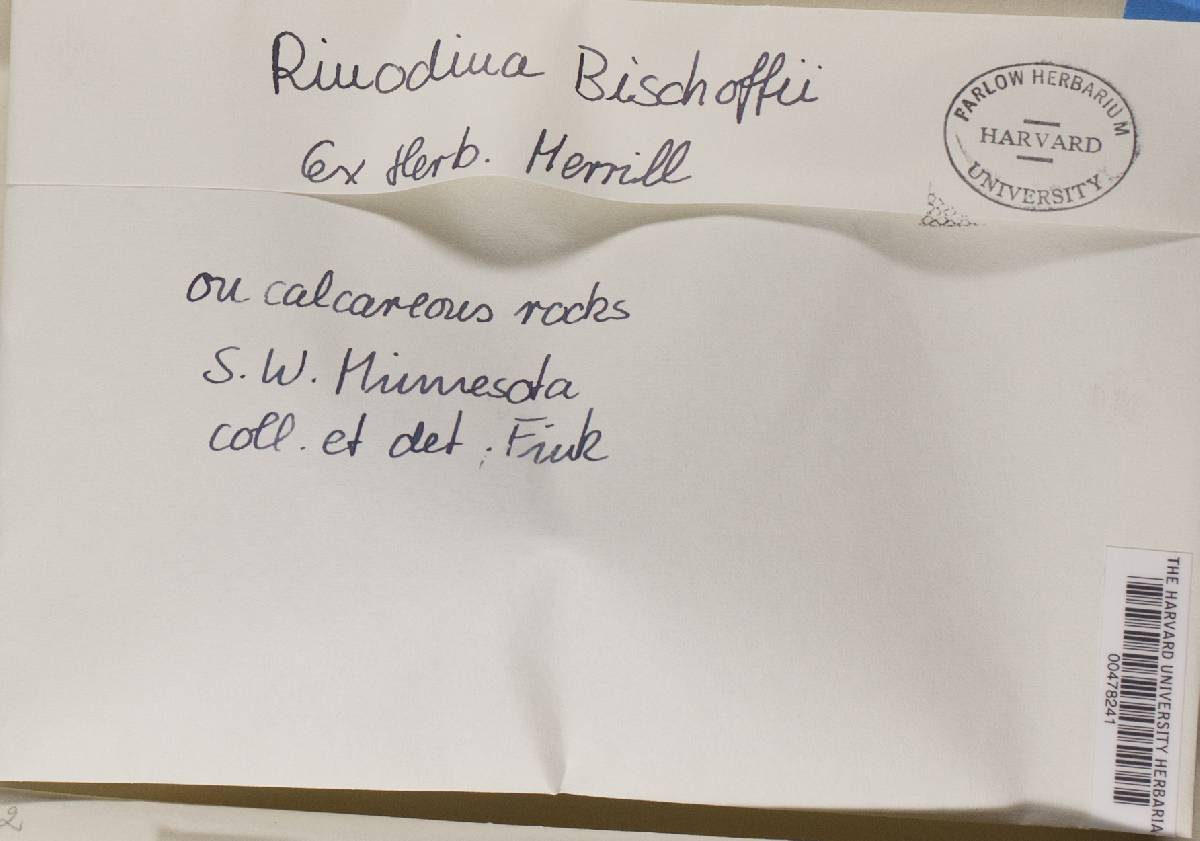 Rinodina Bischoffii
Ex Herb. Merrill
FARLOW HERBARIUM
HARVARD
UNIVERSITY
on calcareous rocks
S.W. Minnesota
coll. et det. Fink
THE HARVARD UNIVERSITY HERBARIA
00478241
2